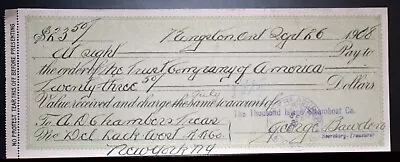 $23 50/ Kingston, Ont Sept 26 1908
At sight Pay to
the order of The Trust Company of America
Twenty three 50/ Dollars
Value received and charge the same to account of
The Thousand Island Steamboat Co.
To A D Chambers Treas
George
Secretary-Treasurer
Del Lack West R Roo
New York NY
NO PROTEST TEAR THIS OFF BEFORE PRESENTING